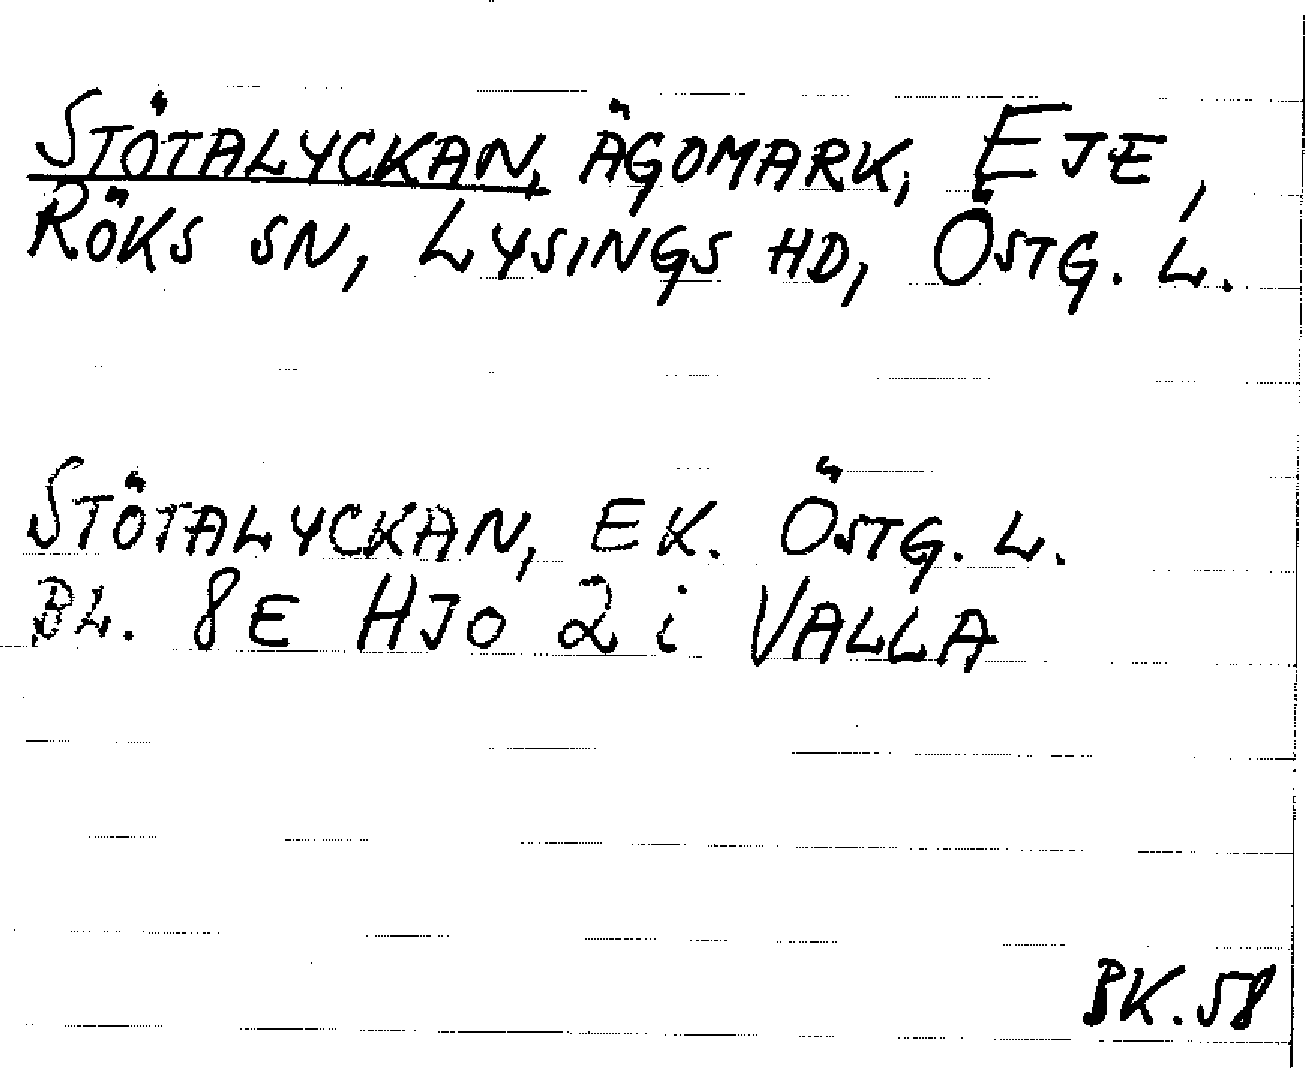 STÖTALYCKAN, ÄGOMARK, EJE,
RÖKS SN, LYSINGS HD, ÖSTG. L.
STÖTALYCKAN, EK. ÖSTG. L.
BL. 8E HJO 2 i VALLA
BK. 58